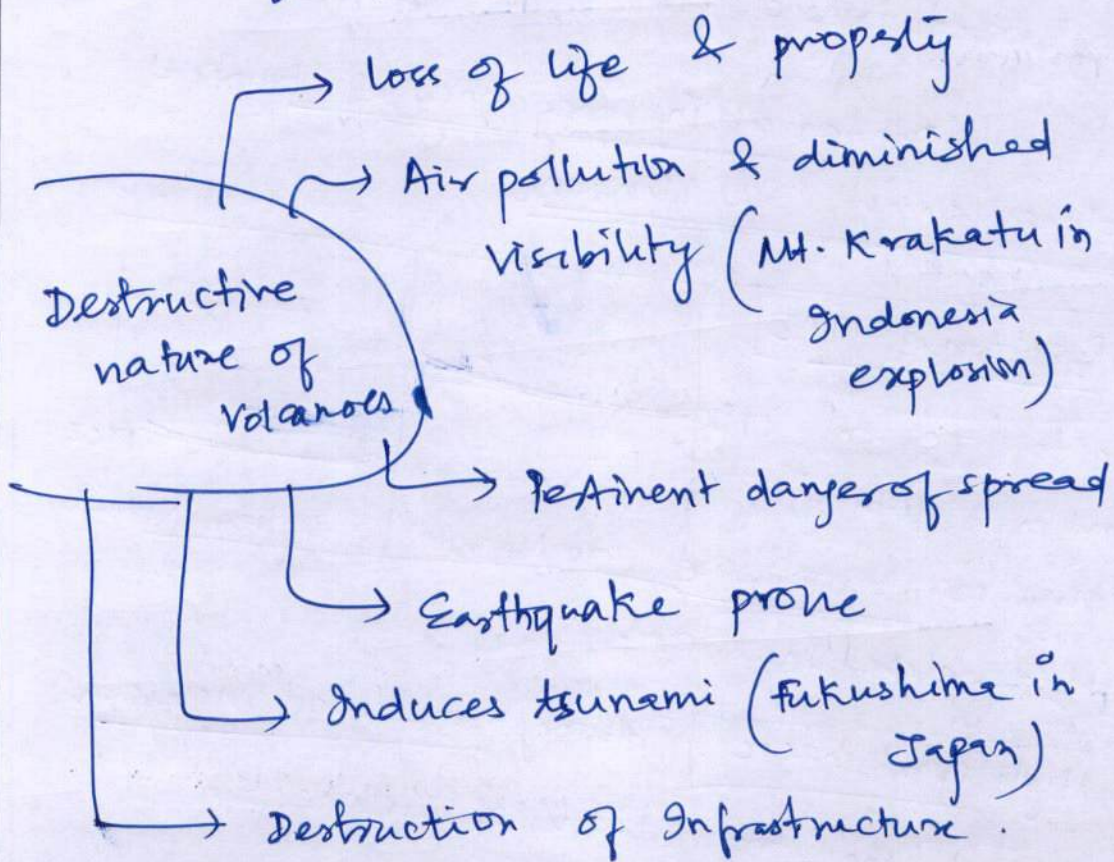 Loss of life & property
Air pollution & diminished
visibility (Mt. Krakatu in
Indonesia
explosion)
Destructive
nature of
Volcanoes
Pertinent danger of spread
Earthquake prone
Induces tsunami (Fukushima in
Japan)
Destruction of Infrastructure.